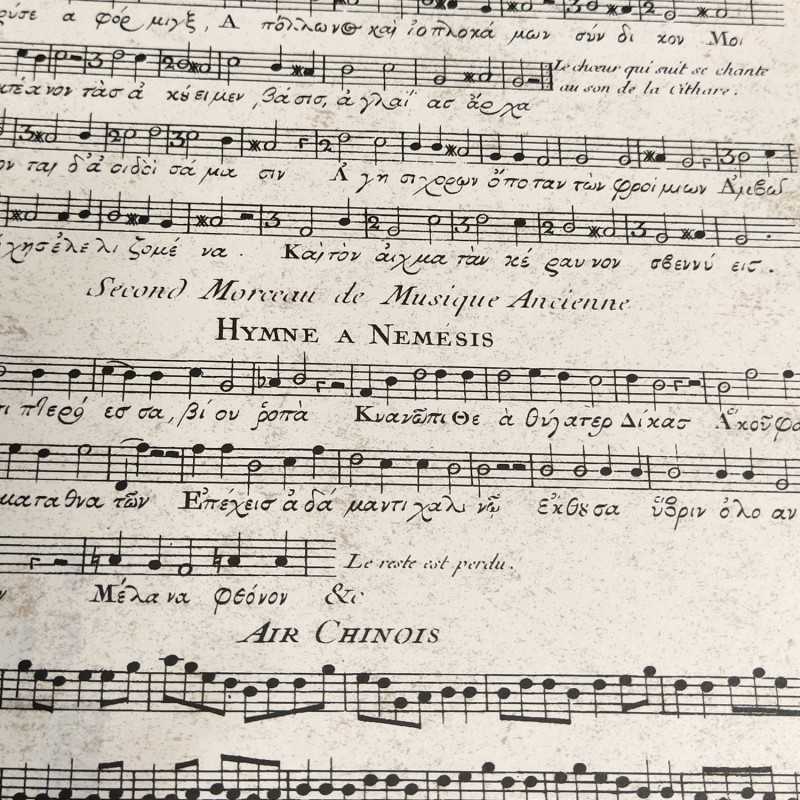 α φόρ μιγξ, Α πόλλωνΘ καὶ ἰοπλοκά μων σύν δι κον Μοι
Le chœur qui suit se chante
au son de la Cithare.
τέανον τᾶσ ἀ κȣ́ει μεν, βά σις, ἀ γλαΐ ας ἄρχα
ται δ'ἀ οιδοὶ σά μα σιν Α γη σιχόρων ὅποταν τῶν φροι μίων
ἐλε λι ζομέ να. Καὶ τὸν αἰχμα τὰν κέ ραυ νον σβεννύ εις.
Second Morceau de Musique Ancienne
HYMNE A NEMÉSIS
πτερό εσ σα, βί ου ῥοπὰ Κυανῶπι Θε ὰ θύγατερ Δίκας Ἃ κοῦφα
ματα θνα τῶν Επέχεισ ἀ δά μαντι χαλι νῷ ἐχθȣσα ὕβριν ὀλο αν
Le reste est perdu.
Μέλα να φθόνον &c
AIR CHINOIS